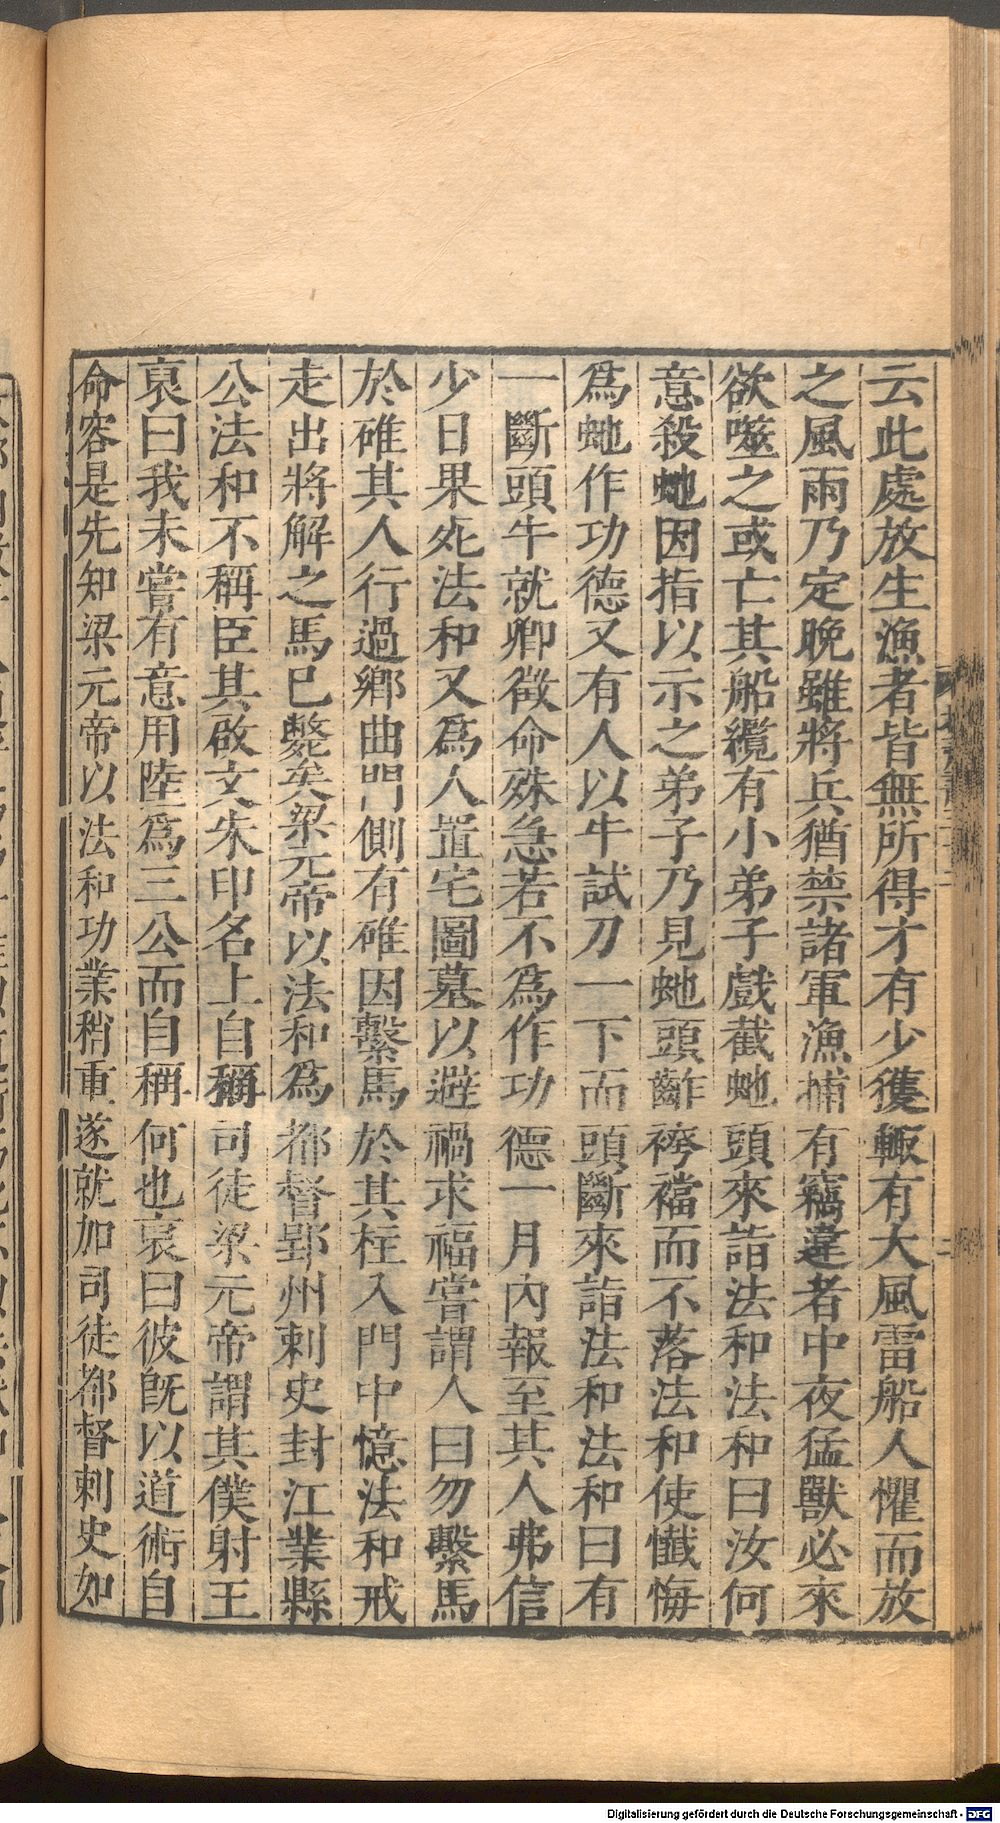 云此處放生漁者皆無所得才有少獲輙有大風雷船人懼而放
之風雨乃定晚雖將兵猶禁諸軍漁捕有竊違者中夜猛獸必來
欲噬之或亡其船纜有小弟子戲截虵頭來詣法和法和曰汝何
意殺虵因指以示之弟子乃見虵頭齚袴襠而不落法和使懺悔
爲虵作功德又有人以牛試刀一下而頭斷來詣法和法和曰有
一斷頭牛就卿徵命殊急若不爲作功德一月內報至其人弗信
少日果死法和又爲人置宅圖墓以避禍求福嘗謂人曰勿繫馬
於碓其人行過鄉曲門側有碓因繫馬於其柱入門中憶法和戒
走出將解之馬已斃矣梁元帝以法和爲都督郢州刺史封江業縣
公法和不稱臣其啟文朱印名上自稱司徒梁元帝謂其僕射王
裒曰我未嘗有意用陸爲三公而自稱何也裒曰彼既以道術自
命容是先知梁元帝以法和功業稍重遂就加司徒都督刺史如
Digitalisierung gefördert durch die Deutsche Forschungsgemeinschaft - DFG